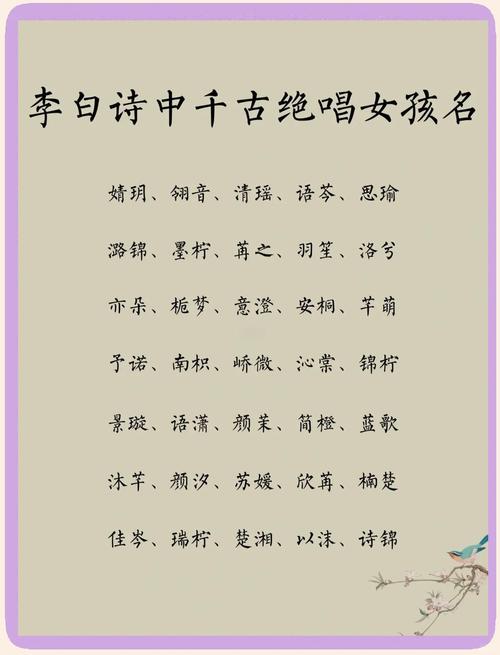 李白诗中千古绝唱女孩名
婧玥、翎音、清瑶、语芩、思瑜
潞锦、墨柠、苒之、羽笙、洛兮
亦朵、栀梦、意澄、安桐、芊萌
予诺、南枳、峤微、沁棠、锦柠
景璇、语潇、颜茉、简橙、蓝歌
沐芊、颜汐、苏媛、欣苒、楠楚
佳岑、瑞柠、楚湘、以沫、诗锦